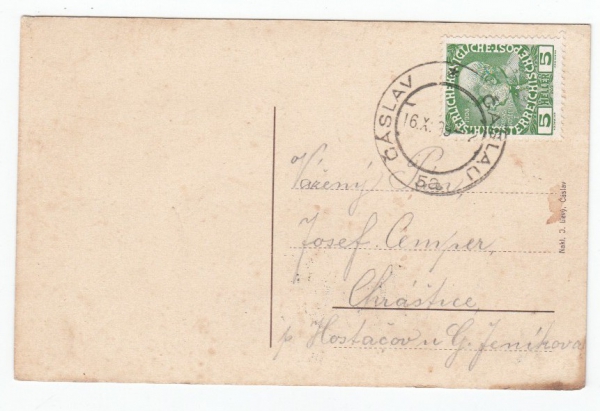 KAISERLICHE KÖNIGLICHE ÖSTERREICHISCHE POST
5 HELLER 5
ČÁSLAV
16.X.
ČASLAU
5a
Vážený Pan
Josef Cemper,
Chrástice
p. Hostačov u G. Jeníkova
Nákl. J. Bílý, Čáslav